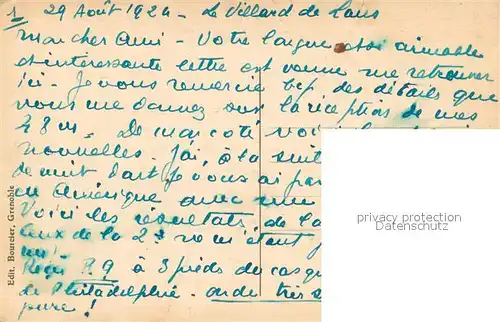 1 29 Août 1924 - Le Villard de Lans
Mon cher Ami - Votre longue aimable
et intéressante lettre est venue me retrouver
ici. Je vous remercie bcp des détails que
vous me donnez sur la réception de mes
48 m. De mon côté voi
nouvelles. J'ai, à la suit
de nuit dont je vous ai par
en Amérique avec une
Voici les résultats, de la
ceux de la 2e
Reçu P. 9 à 3 pieds du casq
de Philadelphie - onde très
pure !
Edit. Bourcier, Grenoble
privacy protection
Datenschutz